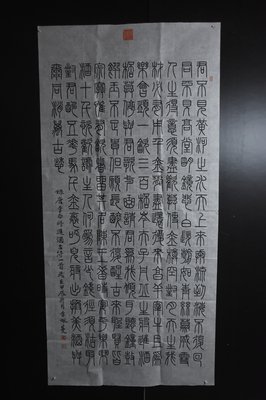 君不見黃河之水天上來奔流到海不復回
君不見高堂明鏡悲白髮朝如青絲暮成雪
人生得意須盡歡莫使金樽空對月天生我
材必有用千金散盡還復來烹羊宰牛且為
樂會須一飲三百杯岑夫子丹丘生將進酒
杯莫停與君歌一曲請君為我傾耳聽鐘鼓
饌玉不足貴但願長醉不復醒古來聖賢皆
寂寞惟有飲者留其名陳王昔時宴平樂斗
酒十千恣歡謔主人何為言少錢徑須沽取
對君酌五花馬千金裘呼兒將出換美酒與
爾同銷萬古愁
錄唐李白將進酒詩一首